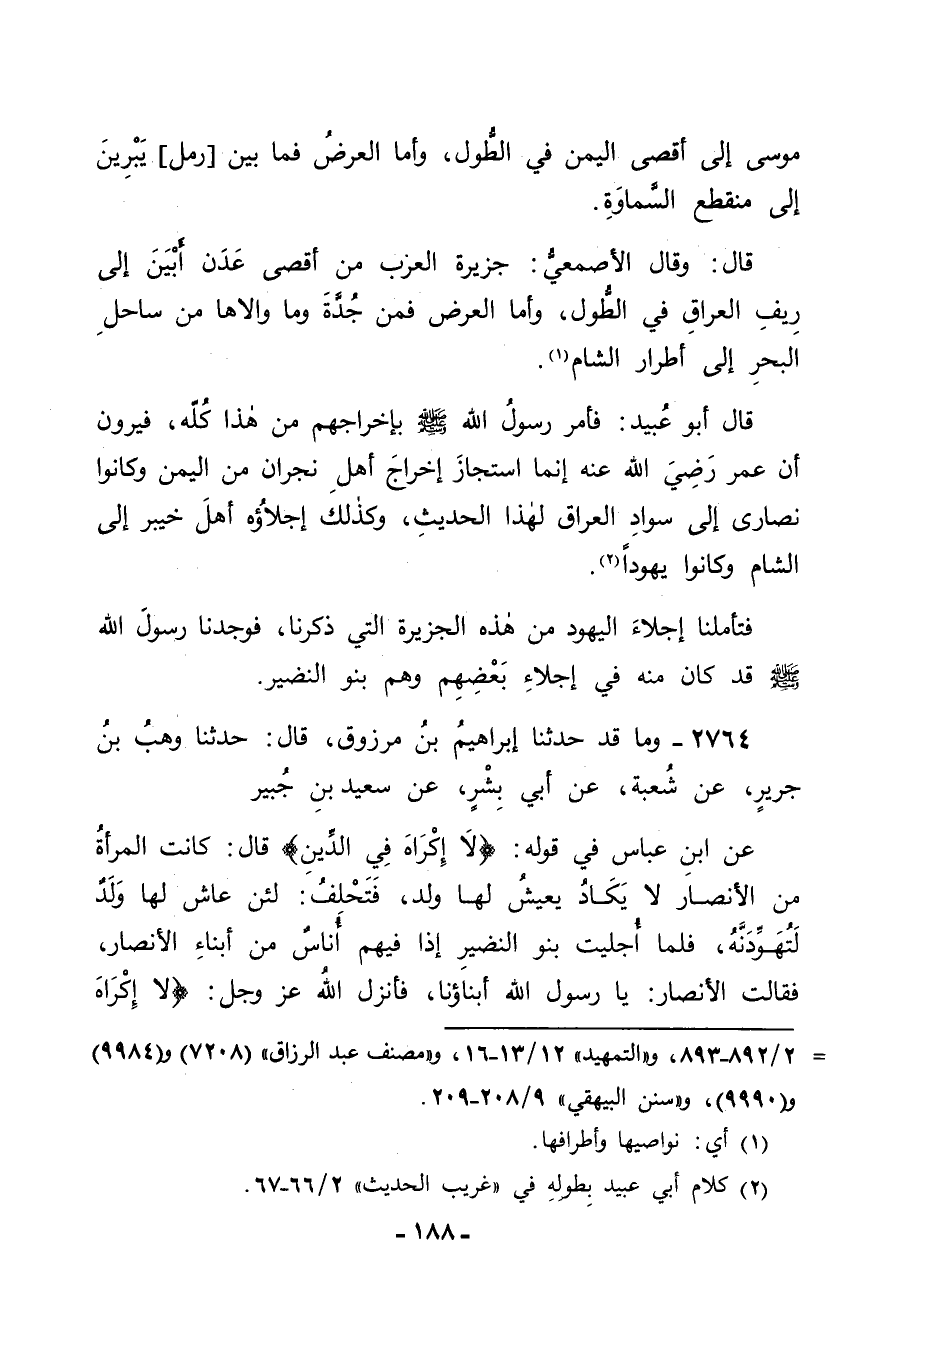 موسى إلى أقصى اليمن في الطُّول، وأما العرضُ فما بين [رمل] يَبْرِينَ
إلى منقطع السَّماوَةِ.
قال: وقال الأصمعيُّ: جزيرة العرب من أقصى عَدَن أَبْيَنَ إلى
رِيفِ العراقِ في الطُّول، وأما العرض فمن جُدَّةَ وما والاها من ساحلِ
البحرِ إلى أطرار الشام(١).
قال أبو عُبيد: فأمر رسولُ الله ﷺ بإخراجهم من هٰذا كُلِّه، فيرون
أن عمر رَضِيَ الله عنه إنما استجازَ إخراجَ أهلِ نجران من اليمن وكانوا
نصارى إلى سوادِ العراق لهٰذا الحديثِ، وكذٰلك إجلاؤُه أهلَ خيبر إلى
الشام وكانوا يهوداً(٢).
فتأملنا إجلاءَ اليهود من هٰذه الجزيرة التي ذكرنا، فوجدنا رسولَ الله
ﷺ قد كان منه في إجلاءِ بَعْضِهِم وهم بنو النضير.
٢٧٦٤ - وما قد حدثنا إبراهيمُ بنُ مرزوق، قال: حدثنا وهبُ بنُ
جريرٍ، عن شُعبة، عن أبي بِشْرٍ، عن سعيد بنِ جُبير
عن ابنِ عباس في قوله: ﴿لَا إِكْرَاهَ فِي الدِّينِ﴾ قال: كانت المرأةُ
من الأنصار لا يَكَادُ يعيشُ لها ولد، فَتَحْلِفُ: لئن عاش لها وَلَدٌ
لَتُهَوِّدَنَّهُ، فلما أُجليت بنو النضيرِ إذا فيهم أُناسٌ من أبناءِ الأنصار،
فقالت الأنصار: يا رسول الله أبناؤنا، فأنزل اللهُ عز وجل: ﴿لا إِكْرَاهَ
= ٨٩٢/٢-٨٩٣، و«التمهيد» ١٣/١٢-١٦، و«مصنف عبد الرزاق» (٧٢٠٨) و(٩٩٨٤)
و(٩٩٩٠)، و«سنن البيهقي» ٢٠٨/٩-٢٠٩.
(١) أي: نواصيها وأطرافها.
(٢) كلام أبي عبيد بِطولِهِ في «غريب الحديث» ٦٦/٢-٦٧.
- ١٨٨ -